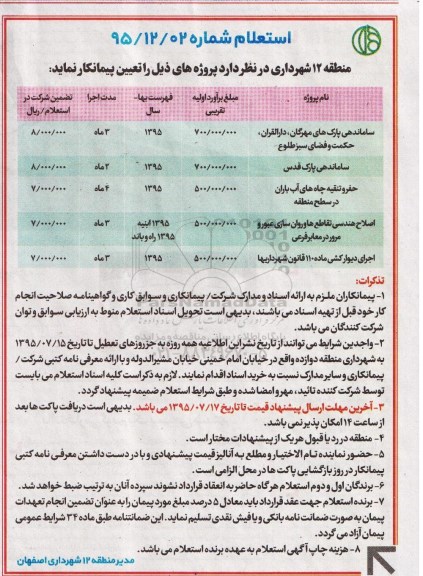 استعلام شماره ۹۵/۱۲/۰۲
منطقه ۱۲ شهرداری در نظر دارد پروژه های ذیل را تعیین پیمانکار نماید:
نام پروژه	مبلغ برآورد اولیه تقریبی	فهرست بها- سال	مدت اجرا	تضمین شرکت در استعلام/ریال
ساماندهی پارک های مهرگان، دارالقران، حکمت و فضای سبز طلوع	۷۰۰/۰۰۰/۰۰۰	۱۳۹۵	۳ ماه	۸/۰۰۰/۰۰۰
ساماندهی پارک قدس	۷۰۰/۰۰۰/۰۰۰	۱۳۹۵	۲ ماه	۸/۰۰۰/۰۰۰
حفر و تنقیه چاه های آب باران در سطح منطقه	۵۰۰/۰۰۰/۰۰۰	۱۳۹۵	۴ ماه	۷/۰۰۰/۰۰۰
اصلاح هندسی تقاطع ها و روان سازی عبور و مرور در معابر فرعی	۵۰۰/۰۰۰/۰۰۰	۱۳۹۵ ابنیه ۱۳۹۵ راه و باند	۳ ماه	۷/۰۰۰/۰۰۰
اجرای دیوارکشی ماده ۱۱۰ قانون شهرداریها	۵۰۰/۰۰۰/۰۰۰	۱۳۹۵	۳ ماه	۷/۰۰۰/۰۰۰
تذکرات:
۱- پیمانکاران ملزم به ارائه اسناد و مدارک شرکت/ پیمانکاری و سوابق کاری و گواهینامه صلاحیت انجام
کار خود قبل از تهیه اسناد می باشند، بدیهی است تحویل اسناد استعلام منوط به ارزیابی سوابق و توان
شرکت کنندگان می باشد.
۲- واجدین شرایط می توانند از تاریخ نشر این اطلاعیه همه روزه به جز روزهای تعطیل تا تاریخ ۱۳۹۵/۰۷/۱۵
به شهرداری منطقه دوازده واقع در خیابان امام خمینی خیابان مشیرالدوله و با ارائه معرفی نامه کتبی شرکت/
پیمانکاری و سایر مدارک نسبت به خرید اسناد اقدام نمایند. لازم به ذکر است کلیه اسناد استعلام می بایست
توسط شرکت کننده تائید، مهر و امضا شده و طبق شرایط استعلام ضمیمه پیشنهاد گردد.
۳- آخرین مهلت ارسال پیشنهاد قیمت تا تاریخ ۱۳۹۵/۰۷/۱۷ می باشد. بدیهی است دریافت پاکت ها بعد
از ساعت ۱۴ امکان پذیر نمی باشد.
۴- منطقه در رد یا قبول هر یک از پیشنهادات مختار است.
۵- حضور نماینده تام الاختیار و مطلع به آنالیز قیمت پیشنهادی و با در دست داشتن معرفی نامه کتبی
پیمانکار در روز بازگشایی پاکت ها در محل الزامی است.
۶- برندگان اول و دوم استعلام هر گاه حاضر به انعقاد قرارداد نشوند سپرده آنان به ترتیب ضبط خواهد شد.
۷- برنده استعلام جهت عقد قرارداد باید معادل ۵ درصد مبلغ مورد پیمان را به عنوان تضمین انجام تعهدات
پیمان به صورت ضمانت نامه بانکی و یا فیش نقدی تسلیم نماید. این ضمانتنامه طبق ماده ۳۴ شرایط عمومی
پیمان آزاد می گردد.
۸- هزینه چاپ آگهی استعلام به عهده برنده استعلام می باشد.
مدیر منطقه ۱۲ شهرداری اصفهان